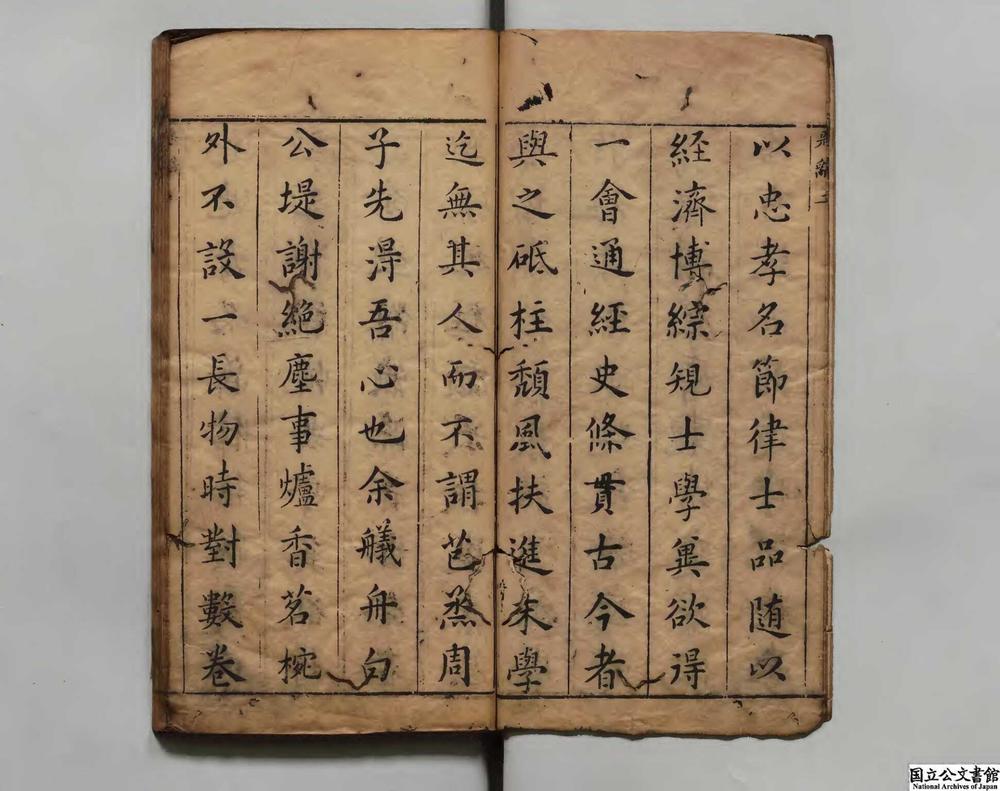 以忠孝名節律士品随以
経濟博綜䂓士學兾欲得
一會通經史條貫古今者
與之砥柱頽風扶進末學
迄無其人而不謂芑蒸周
子先淂吾心也余艤舟白
公堤謝絶塵事爐香茗椀
外不設一長物時對數卷
国立公文書館
National Archives of Japan